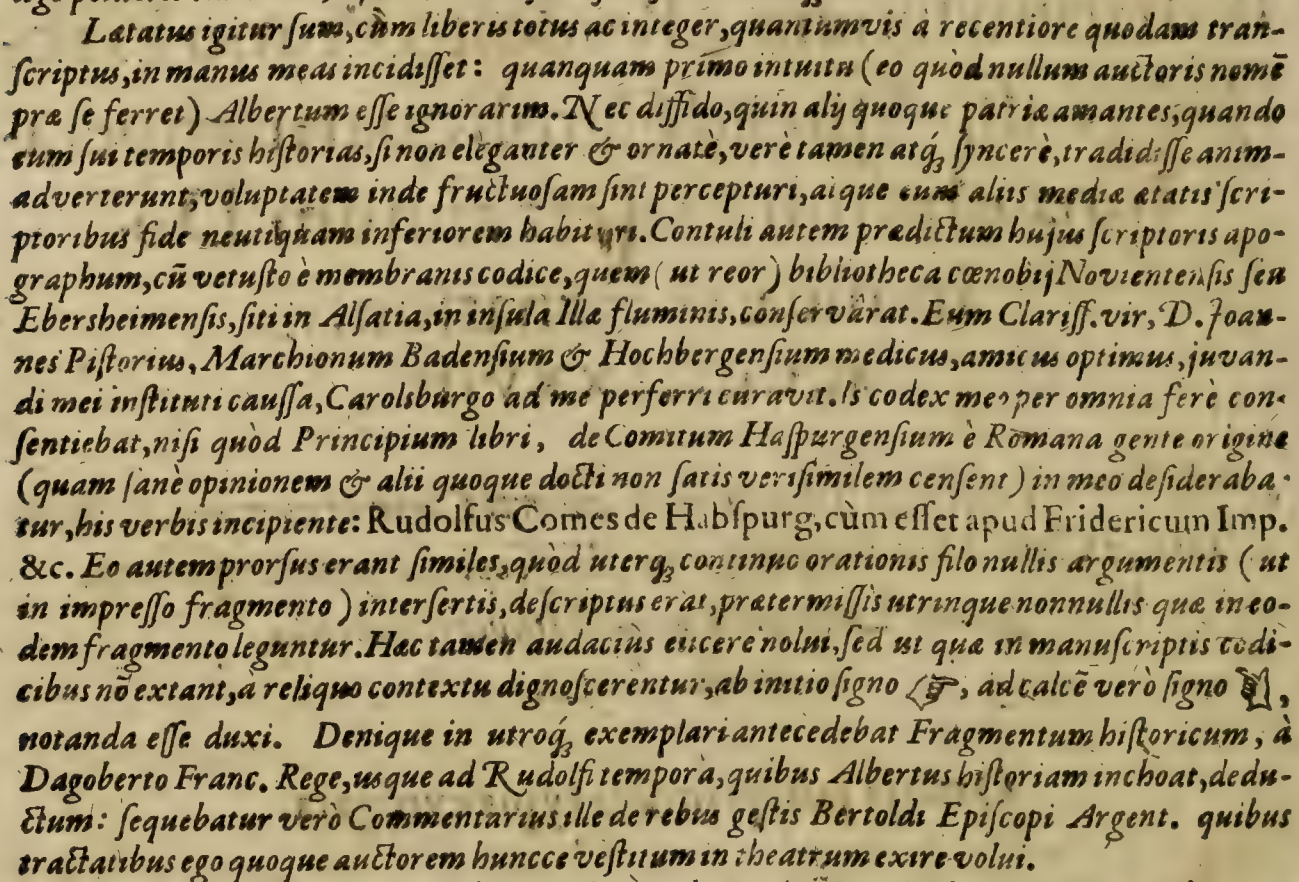 Lætatus igitur sum, cùm liber is totus ac integer, quantumvis à recentiore quodam tran-
scriptus, in manus meas incidisset: quanquam primo intuitu (eo quòd nullum auctoris nomē
præ se ferret) Albertum esse ignorarim. Nec diffido, quin alij quoque patriæ amantes, quando
eum sui temporis historias, si non eleganter & ornatè, verè tamen atq́; syncerè, tradidisse anim-
adverterunt, voluptatem inde fructuosam sint percepturi, atque eum aliis mediæ ætatis scri-
ptoribus fide neutiquam inferiorem habituri. Contuli autem prædictum hujus scriptoris apo-
graphum, cū vetusto è membranis codice, quem (ut reor) bibliotheca cœnobij Novientensis seu
Ebersheimensis, siti in Alsatia, in insula Illæ fluminis, conservârat. Eum Clariss. vir, D. Joan-
nes Pistorius, Marchionum Badensium & Hochbergensium medicus, amicus optimus, juvan-
di mei instituti caussa, Carolsburgo ad me perferri curavit. Is codex meo per omnia ferè con-
sentiebat, nisi quòd Principium libri, de Comitum Haspurgensium è Romana gente origine
(quam sanè opinionem & alii quoque docti non satis verisimilem censent) in meo desideraba-
tur, his verbis incipiente: Rudolfus Comes de Habspurg, cùm esset apud Fridericum Imp.
&c. Eo autem prorsus erant similes, quòd uterq; continuo orationis filo nullis argumentis (ut
in impresso fragmento) intersertis, descriptus erat, prætermissis utrinque nonnullis quæ in eo-
dem fragmento leguntur. Hæc tamen audaciùs eiicere nolui, sed ut quæ in manuscriptis codi-
cibus nō extant, à reliquo contextu dignoscerentur, ab initio signo ☞, ad calcē verò signo ☟,
notanda esse duxi. Denique in utroq́; exemplari antecedebat Fragmentum historicum, à
Dagoberto Franc. Rege, usque ad Rudolfi tempora, quibus Albertus historiam inchoat, dedu-
ctum: sequebatur verò Commentarius ille de rebus gestis Bertoldi Episcopi Argent. quibus
tractatibus ego quoque auctorem huncce vestitum in theatrum exire volui.